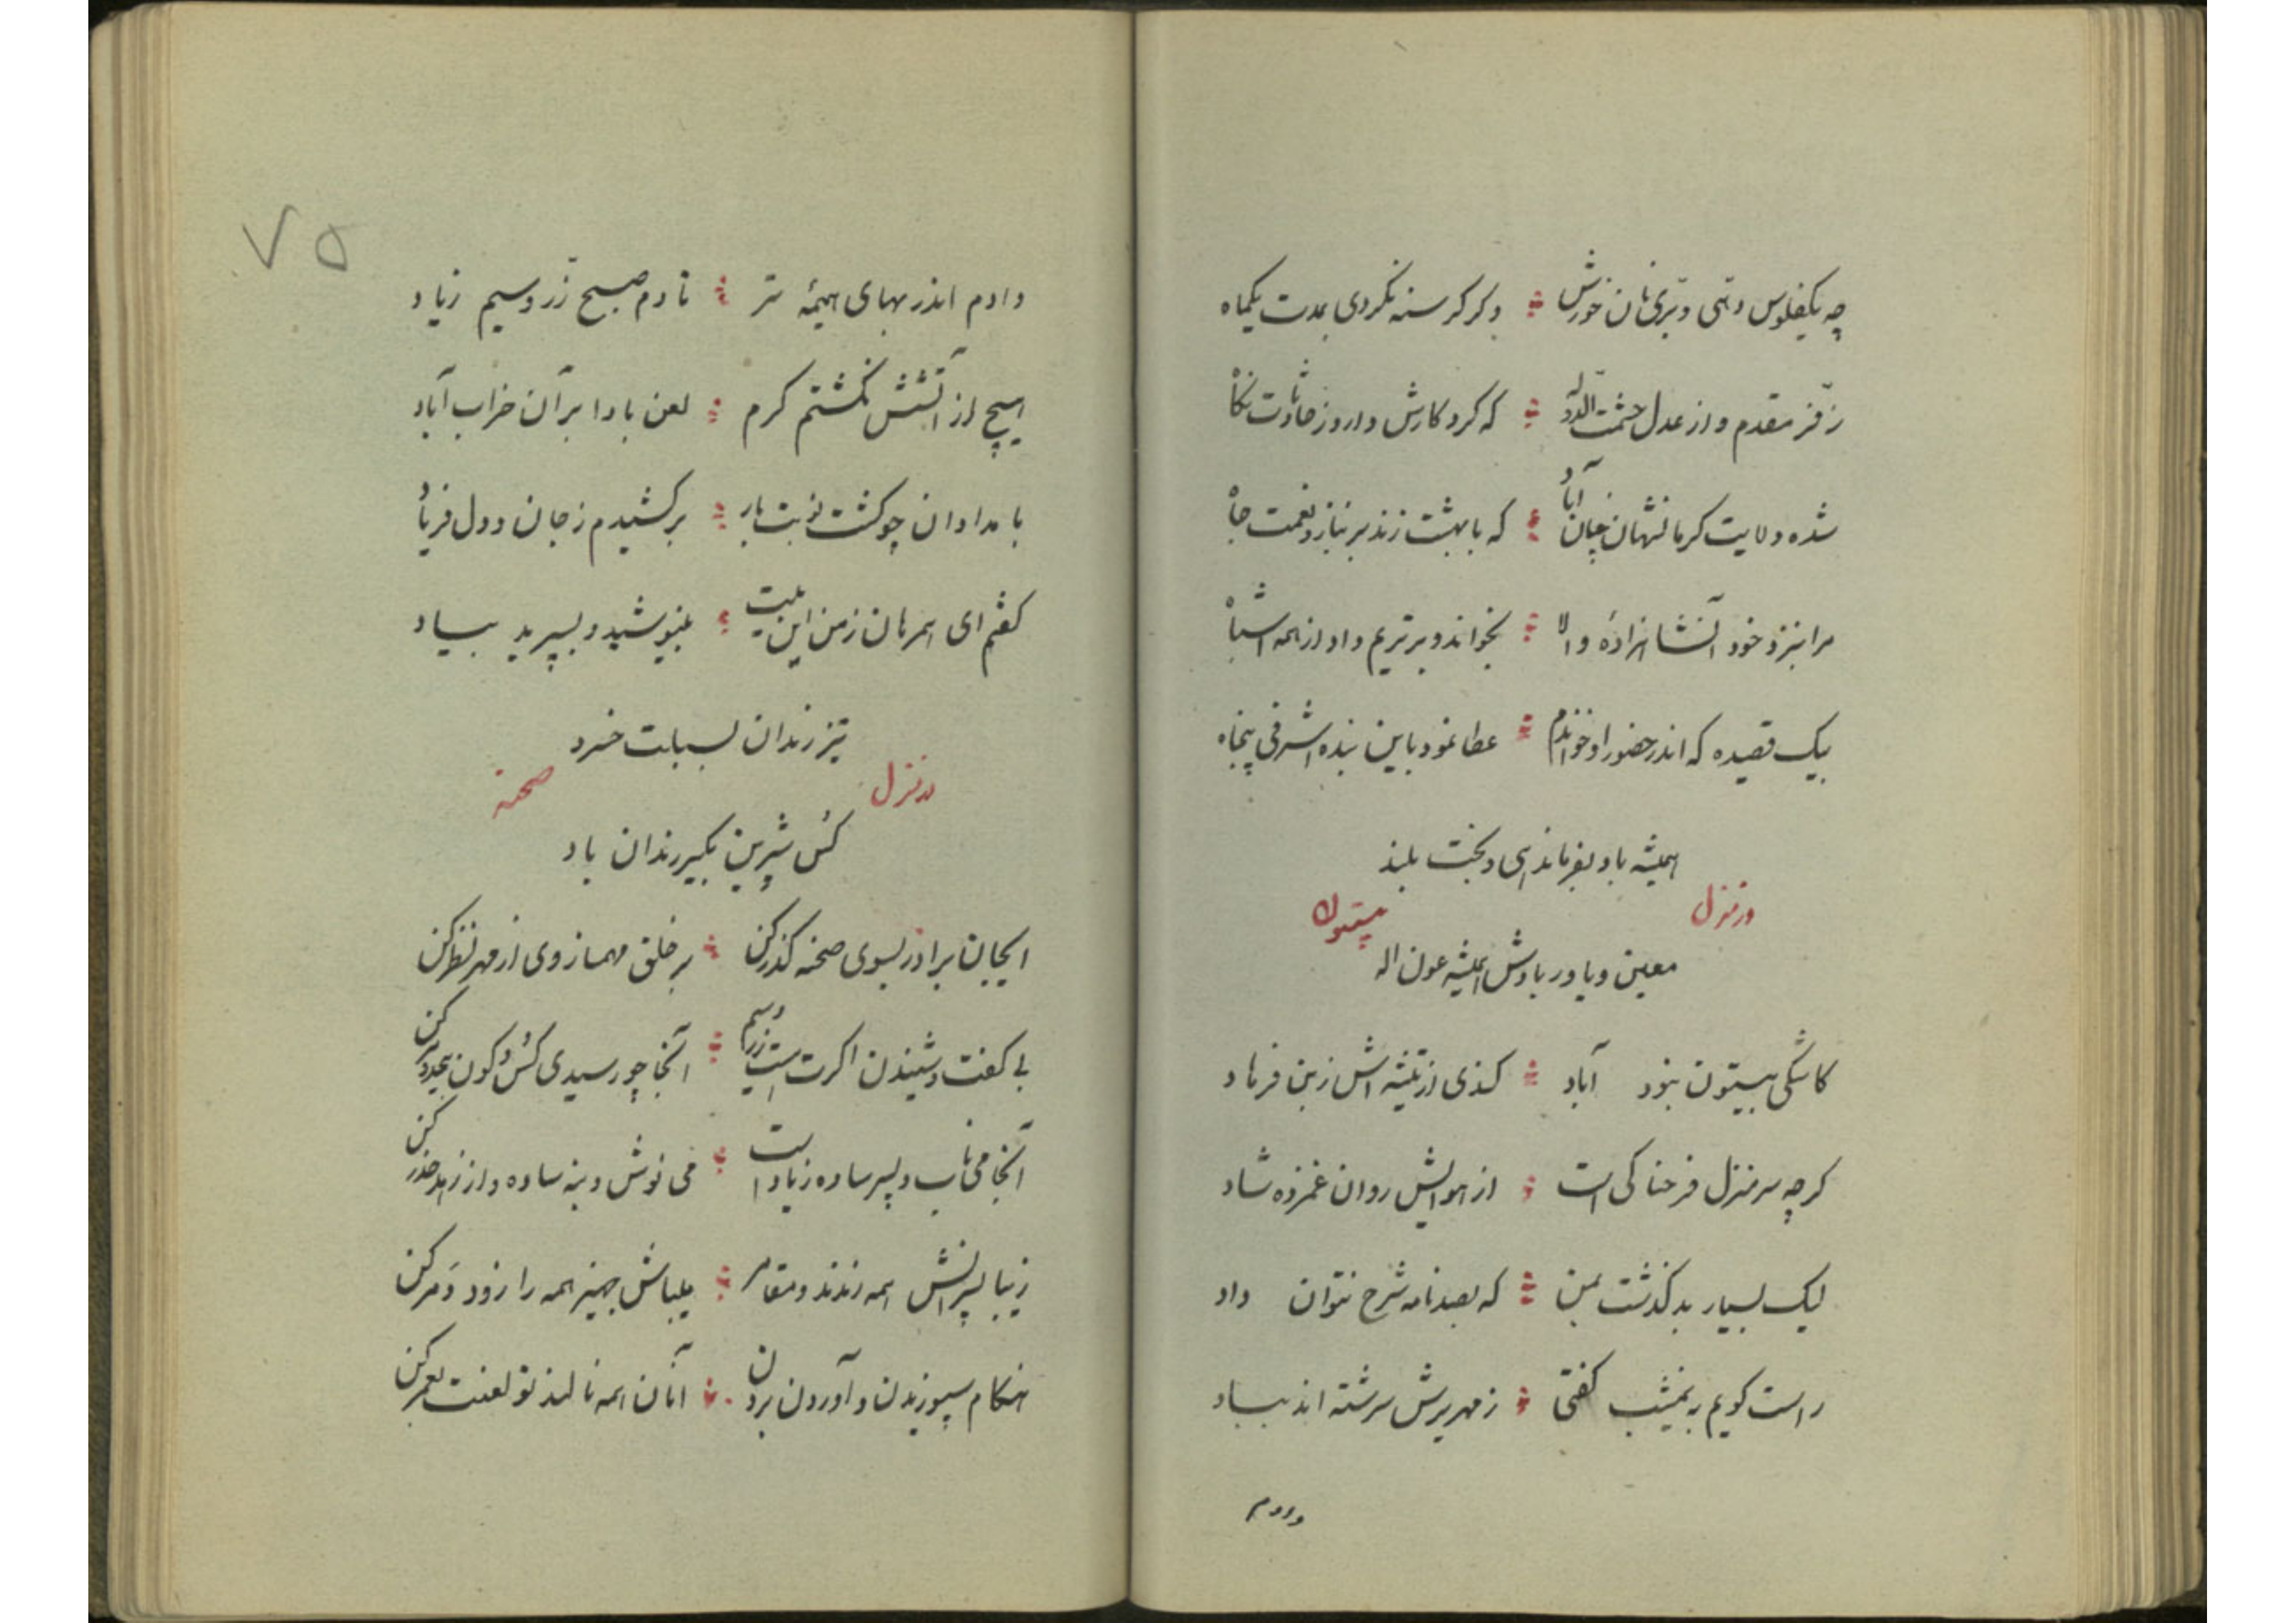 چه یکفلوس و تهی و تبری نان خورش وکر کرسنه نکردی بمدت یکماه
ز فر مقدم و از عدل حشمت الدوله که کرد کارش دارد ز حادثات نکاه
شده ولایت کرمانشهان چنان آباد که با بهشت زند بر نیاز و نعمت جاه
مرا بنزد خود آنشاهزادهٔ والا بخواند و برتریم داد از همه اشباه
بیک قصیده که اندر حضور او خواندم عطا نمود باین بنده اشرفی پنجاه
همیشه باد بفرماندهی و بخت بلند
در منزل بیستون
معین و یاور بادش همیشه عون اله
کاشکی بیستون نبود آباد کندی از تیشه اش ز بن فرهاد
کرچه سر منزل فرحناکی است از هوایش روان غمزده شاد
لیک بسیار بد کذشت بمن که بصد نامه شرح نتوان داد
راست کویم به نیمشب کفتی زمهریرش سرشته اند بباد
دادم
۷۵
دادم اندر بهای هیمهٔ تر تا دم صبح زر و سیم زیاد
هیچ از آتشش نکشتم کرم لعن بادا بر آن خراب آباد
بامدادان چو کشت نوبت بار برکشیدم ز جان و دل فریاد
کفتم ای همرهان ز من این بیت بنیوشید و بسپرید بیاد
تیز رندان بسبلت خسرو
در منزل صحنه
کس شیرین بکیر رندان باد
ایجان برادر بسوی صحنه کذر کن بر خلق مهمانروی از مهر نظر کن
بی کفت و شنیدن اکرت است زر و سیم آنجا چو رسیدی کس و کون بیحد و مر کن
آنجا می ناب و پسر ساده زیاد است می نوش و بنه ساده و از زهد حذر کن
زیبا پسرانش همه رندند و مقامر بلباش بهیز همه را زود دمر کن
هنکام سپوزیدن و آوردن و بردن آنان همه نالند تو لعنت بعمر کن